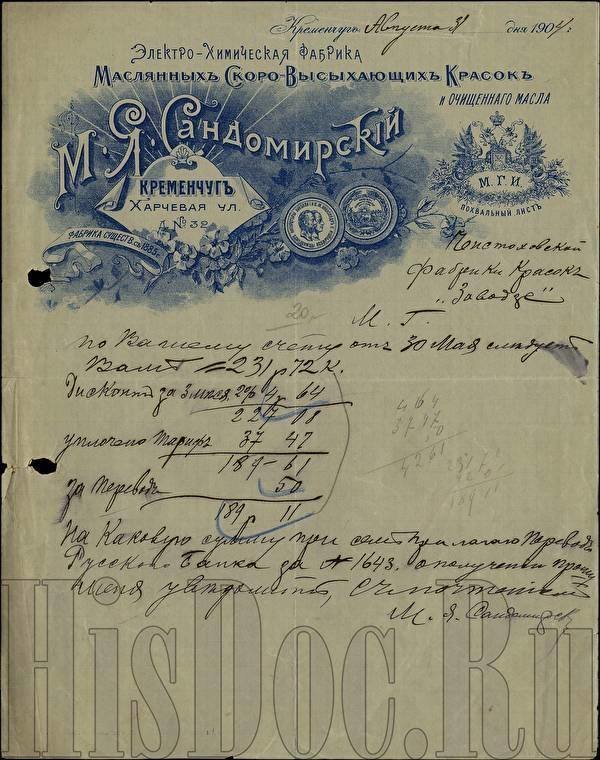 Кременчугъ, Августа 31 дня 1904 г.
Электро-Химическая Фабрика
Маслянныхъ Скоро-Высыхающихъ Красокъ
и очищеннаго масла
М. Я. Сандомирскій
Кременчугъ
Харчевая ул.
Д. № 32
Фабрика существ. съ 1885 г.
М. Г. И.
Похвальный листъ
Ченстоховской
фабрики Красокъ
„Заводзе“
20
М. Г.
по Вашему счету отъ 30 Мая слѣдуетъ
Вамъ = 231 р 72 к.
Дисконтъ за 3 мѣсяца 2% 4 р 64
227 08
уплочено Тарифъ 37 47
189-61
за переводъ 50
189 р 11
4 64
37 47
50
42 61
231 72
42 61
189 11
На каковую сумму при семъ прилагаю Переводъ
Русскаго Банка за № 1643. о получении прошу
меня увѣдомить, С почтеніемъ
М. Я. Сандомирскій
HisDoc.Ru